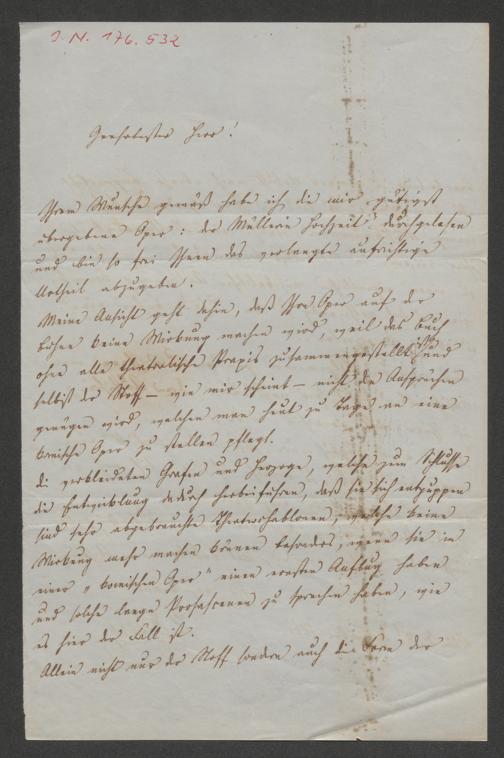 I. N. 176.532
Geehrtester Herr!
Ihrem Wunsche gemäß habe ich die mir gütigst
übergebene Oper: der Müllerin Hochzeit durchgelesen
und bin so frei Ihnen das verlangte aufrichtige
Urtheil abzugeben.
Meine Ansicht geht dahin, daß Ihre Oper auf der
Bühne keine Wirkung machen wird, weil das Buch
ohne alle theatralische Praxis zusammengestellt ist und
selbst der Stoff – wie mir scheint – nicht den Ansprüchen
genügen wird, welchen man heut zu Tage an eine
komische Oper zu stellen pflegt.
Die verkleideten Grafen und Herzoge, welche zum Schlusse
die Entwicklung dadurch herbeiführen, daß sie sich entpuppen
sind sehr abgebrauchte Theaterschablonen, welche keine
Wirkung mehr machen können besonders, wenn sie in
einer "komischen Oper" einen ernsten Anflug haben
und solche lange Prosascenen zu sprechen haben, wie
es hier der Fall ist.
Allein nicht nur der Stoff sondern auch die Form der